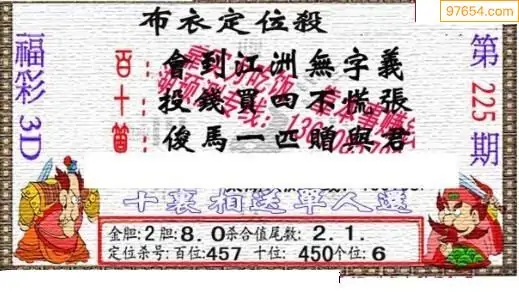 97654.com
布衣定位殺
福彩3D
第225期
百：會到江洲無字義
十：投錢買四不慌張
個：俊馬一匹贈與君
十裏相送單人選
金胆:2胆:8.0杀合值尾数:2.1.
定位杀号:百位:457 十位:450个位:6